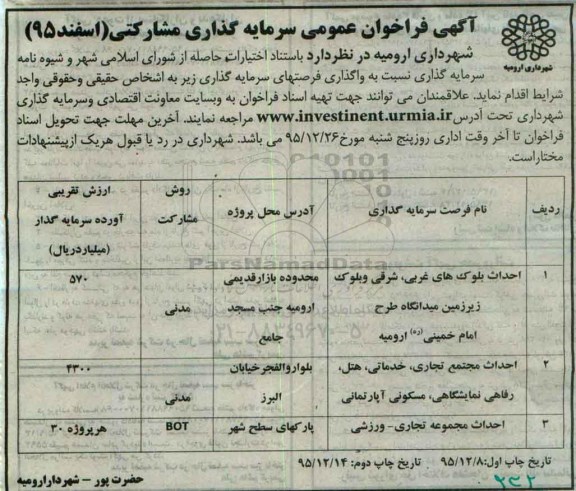 آگهی فراخوان عمومی سرمایه گذاری مشارکتی(اسفند۹۵)
شهرداری ارومیه
شهرداری ارومیه در نظردارد باستناد اختیارات حاصله از شورای اسلامی شهر و شیوه نامه
سرمایه گذاری نسبت به واگذاری فرصتهای سرمایه گذاری زیر به اشخاص حقیقی وحقوقی واجد
شرایط اقدام نماید. علاقمندان می توانند جهت تهیه اسناد فراخوان به وبسایت معاونت اقتصادی وسرمایه گذاری
شهرداری تحت آدرس www.investinent.urmia.ir مراجعه نمایند. آخرین مهلت جهت تحویل اسناد
فراخوان تا آخر وقت اداری روزپنج شنبه مورخ۹۵/۱۲/۲۶ می باشد. شهرداری در رد یا قبول هریک ازپیشنهادات
مختاراست.
ردیف نام فرصت سرمایه گذاری آدرس محل پروژه روش مشارکت ارزش تقریبی آورده سرمایه گذار (میلیاردریال)
۱ احداث بلوک های غربی، شرقی وبلوک محدوده بازارقدیمی ۵۷۰
زیرزمین میدانگاه طرح ارومیه جنب مسجد مدنی
امام خمینی (ره) ارومیه جامع
۲ احداث مجتمع تجاری، خدماتی، هتل، بلواروالفجرخیابان ۴۳۰۰
رفاهی نمایشگاهی، مسکونی آپارتمانی البرز مدنی
۳ احداث مجموعه تجاری- ورزشی پارکهای سطح شهر BOT هرپروژه ۳۰
تاریخ چاپ اول:۹۵/۱۲/۸ تاریخ چاپ دوم: ۹۵/۱۲/۱۴
حضرت پور - شهردارارومیه
۲۴۲
ParsNamadData